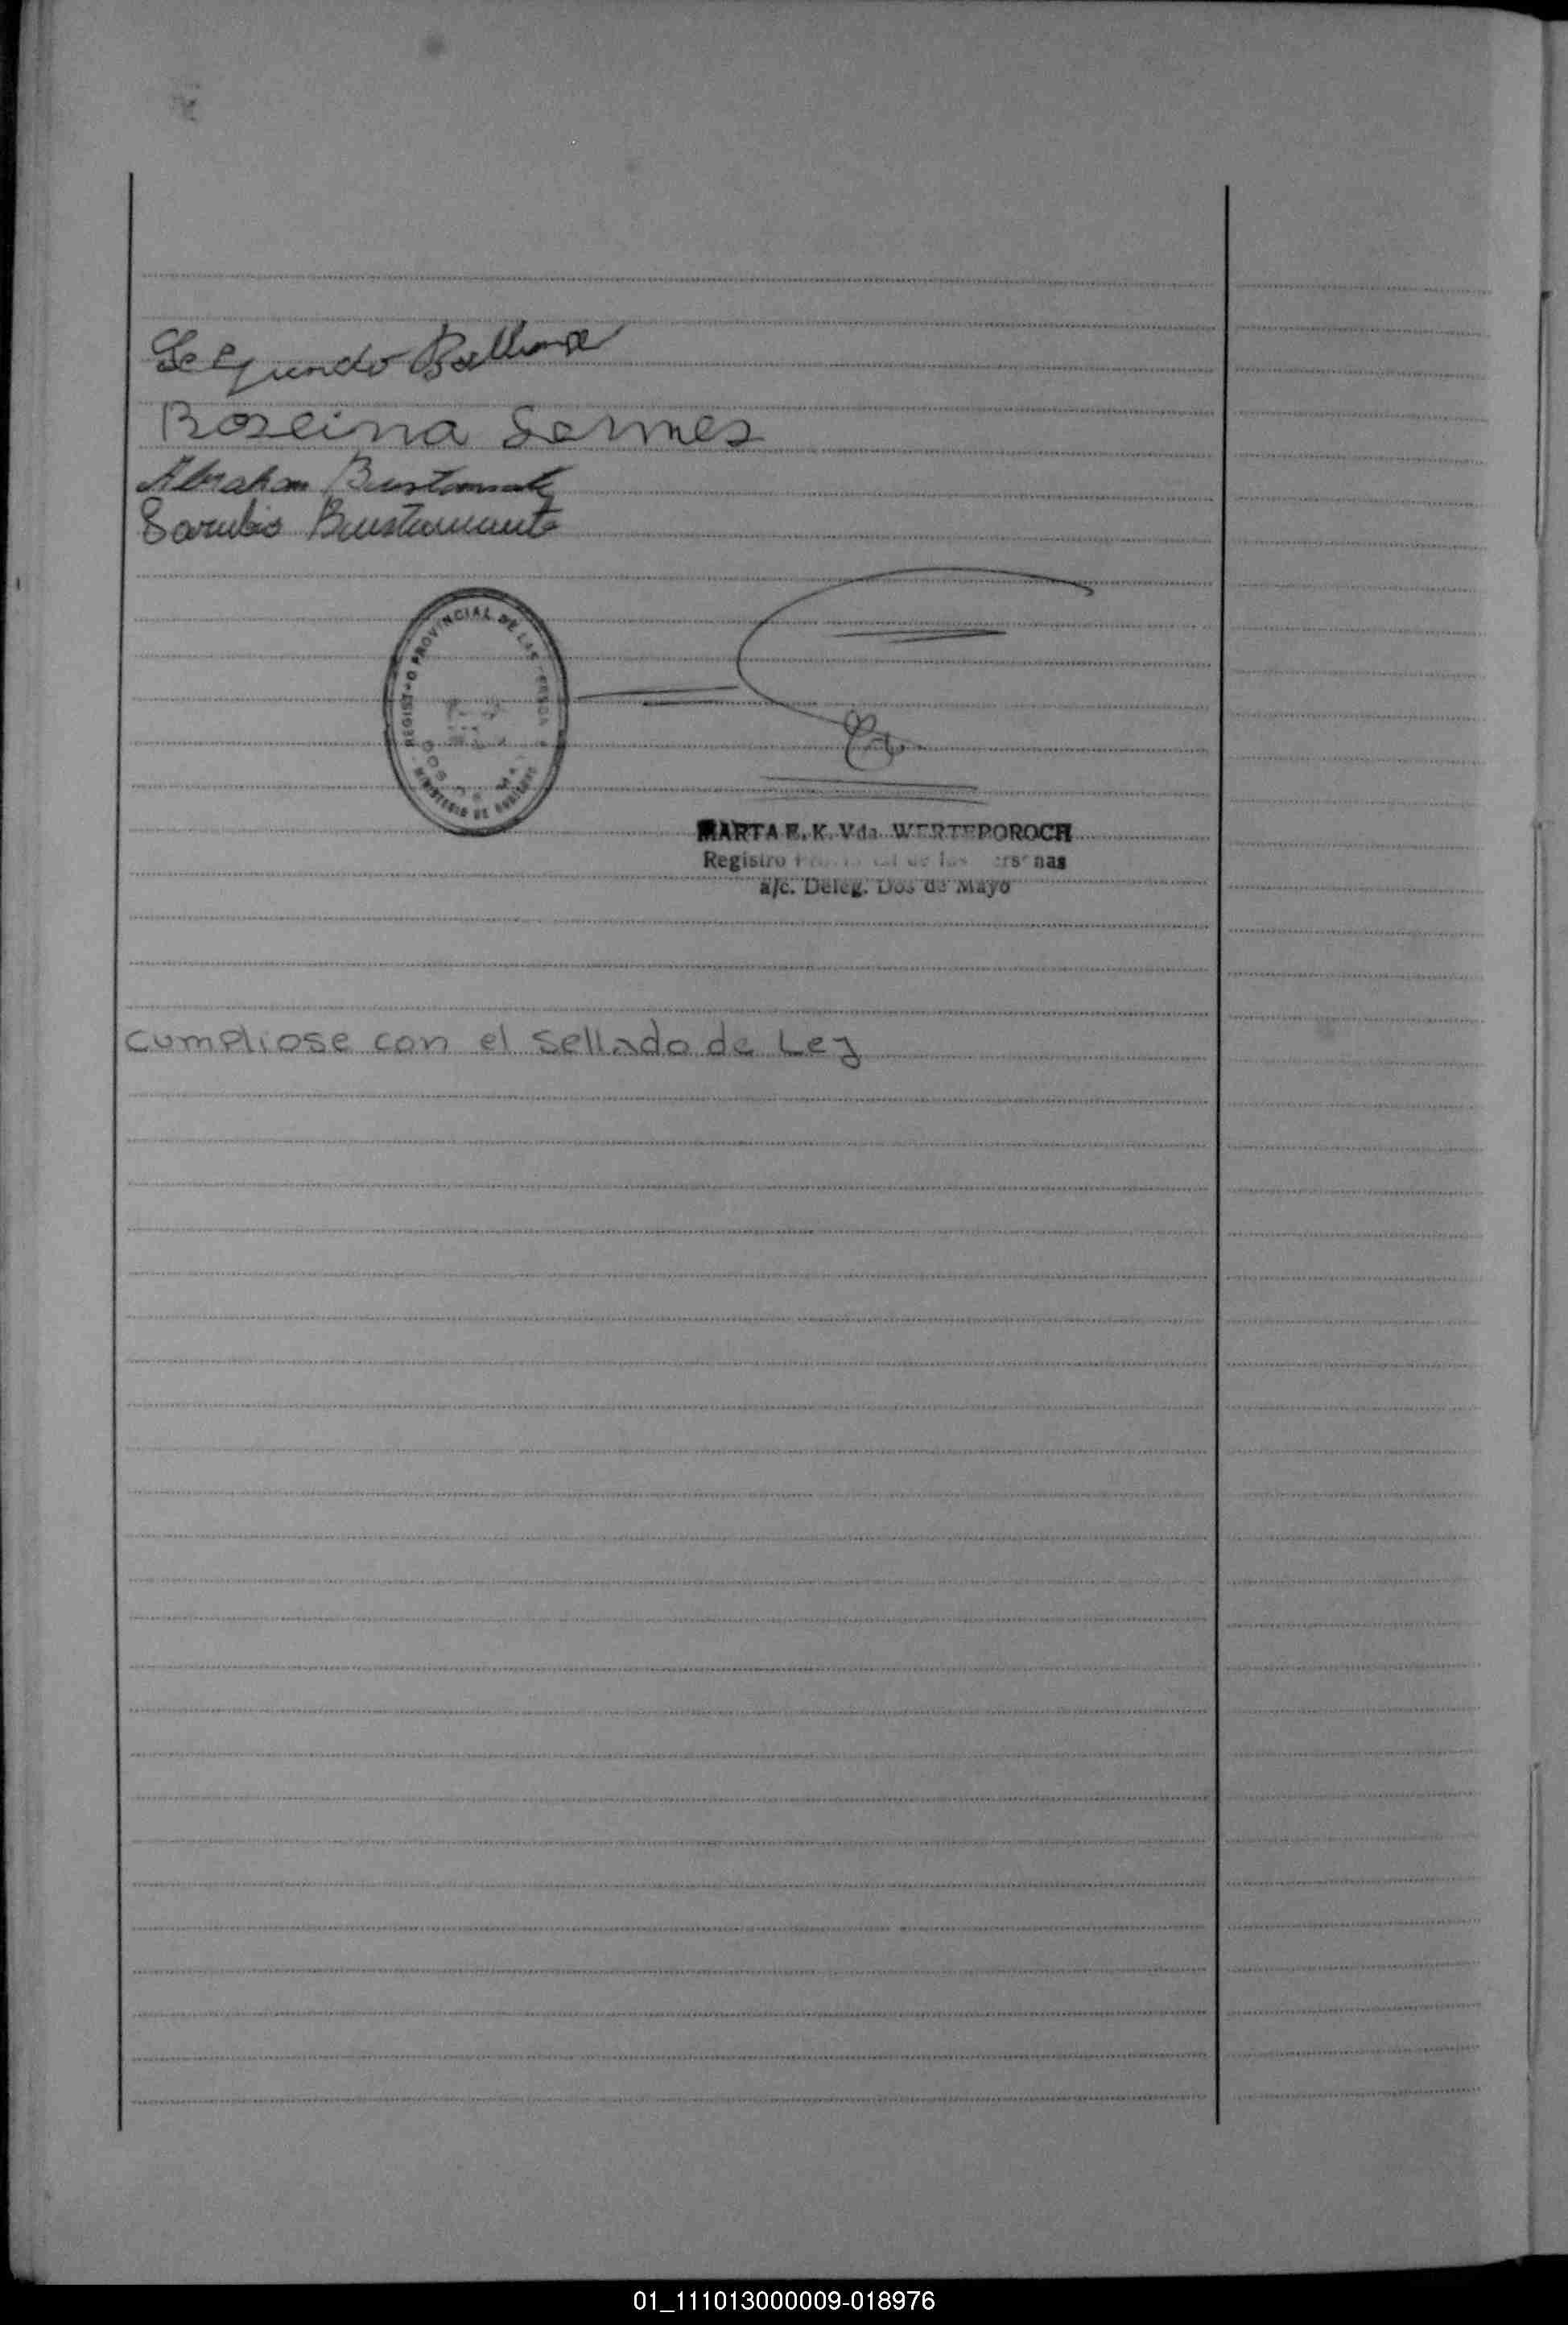 Segundo
Roseina Sermes
Abraham Bustamante
Bustamante
REGISTRO PROVINCIAL DE LAS
DOS DE MA
MINISTERIO DE GOBIERNO
MARTA E. K. Vda. WERTEPOROCH
Registro de las
a/c. Deleg. Dos de Mayo
cumpliose con el sellado de Ley
01_111013000009-018976